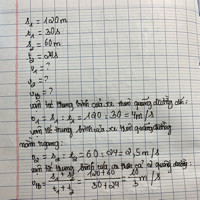 s₁ = 120m
t₁ = 30s
s₂ = 60m
t₂ = 24s
v₁ = ?
v₂ = ?
vtb = ?
vận tốc trung bình của xe trên quãng đường dốc:
v₁ = s₁ : t₁ = 120 : 30 = 4m/s
vận tốc trung bình của xe trên quãng đường
nằm ngang:
v₂ = s₂ : t₂ = 60 : 24 = 2,5m/s
vận tốc trung bình của xe trên cả 2 quãng đường
vtb = (s₁ + s₂)/(t₁ + t₂) = (120 + 60)/(30 + 24) = 10/3 m/s